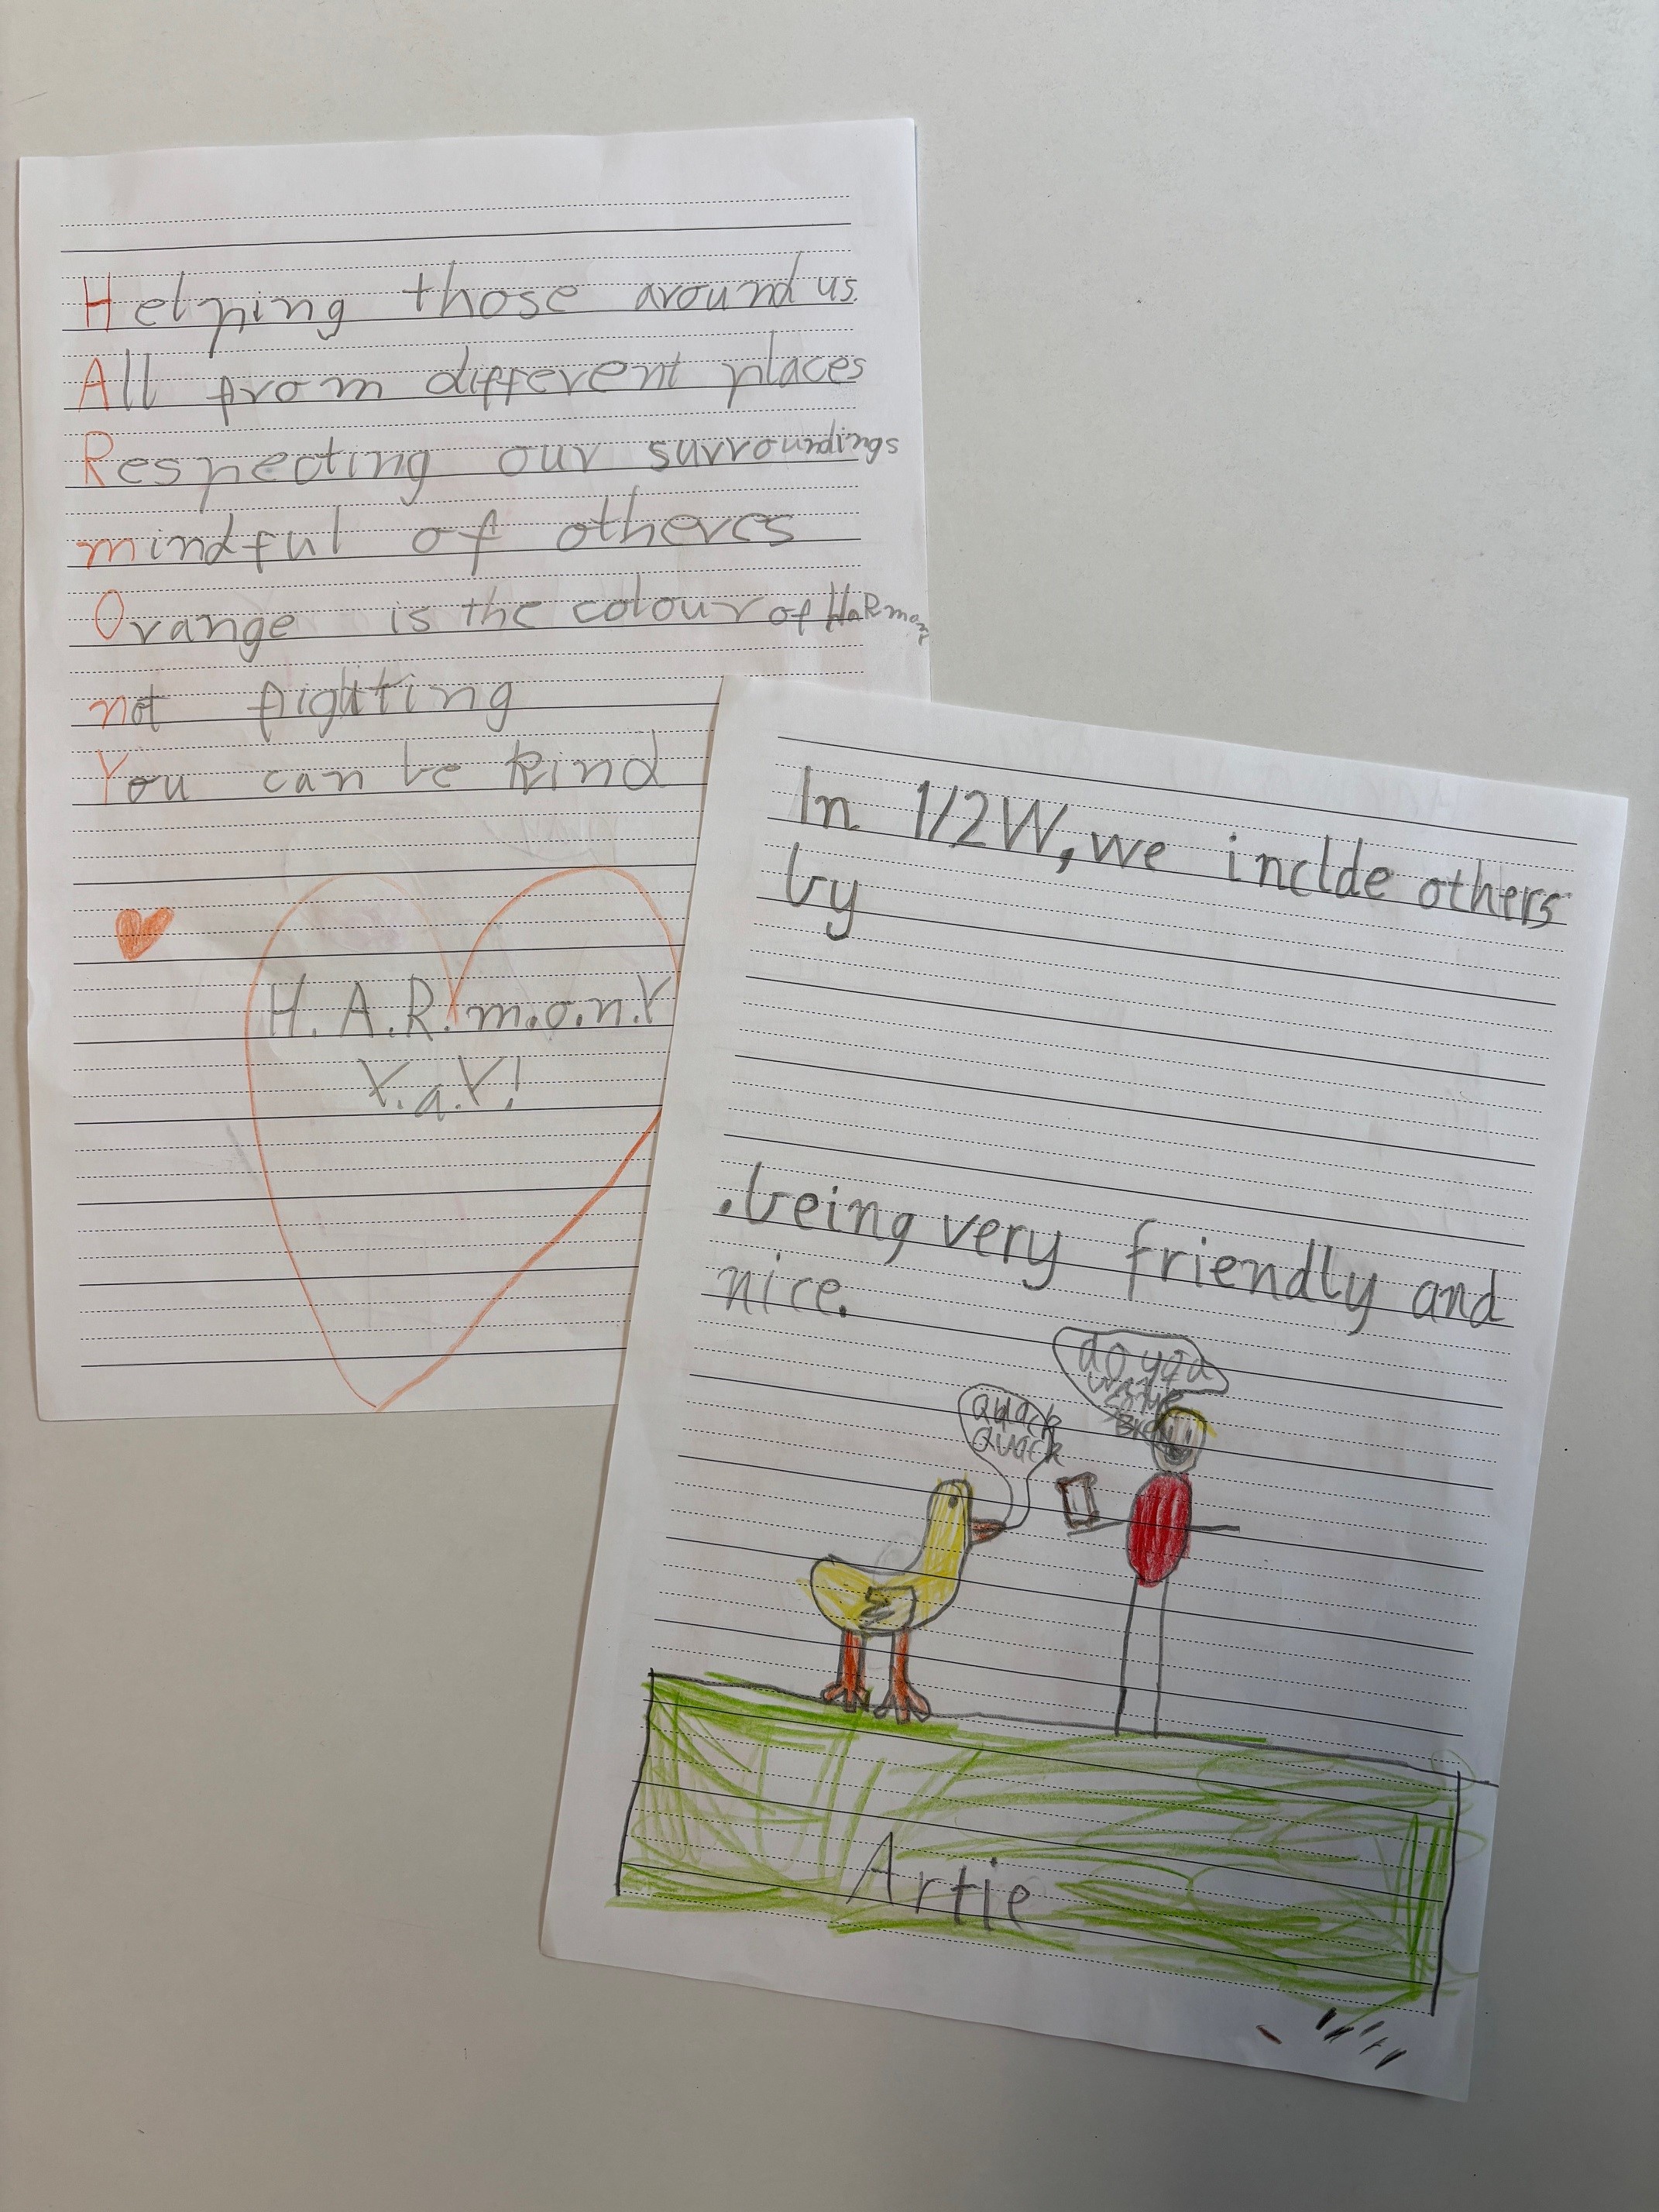 Helping those around us.
All from different places
Respecting our surroundings
mindful of otheres
Orange is the colour of HaRmony
not fighting
You can be kind
H.A.R.m.o.n.Y
Y.a.Y!
In 1/2W, we inclde others
by
.being very friendly and
nice.
do you
want
some
Bre
quack
quack
Artie